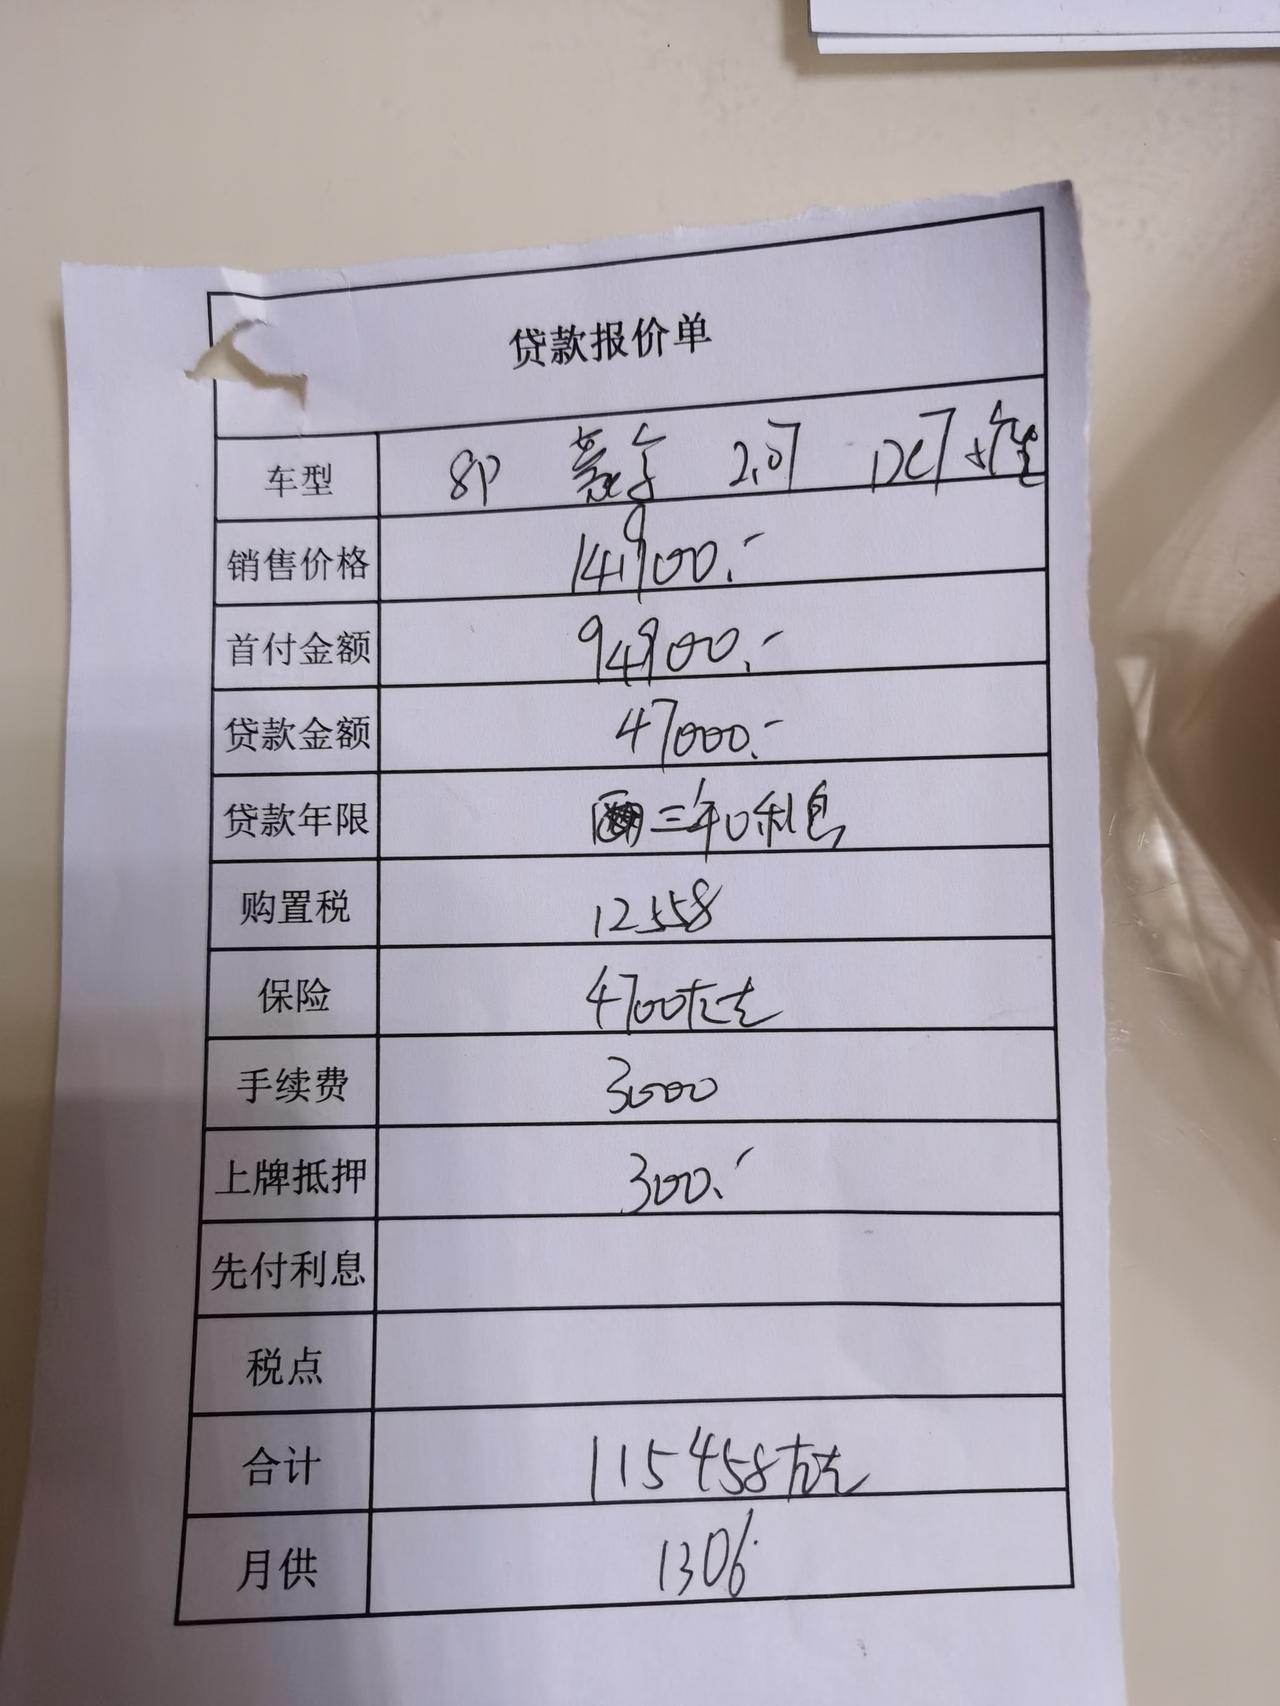 贷款报价单
车型 8P 豪华 2.0T DCT 5座
销售价格 141900.-
首付金额 94900.-
贷款金额 47000.-
贷款年限 三年0利息
购置税 12558
保险 4700左右
手续费 3000
上牌抵押 300.-
先付利息
税点
合计 115458左右
月供 1306